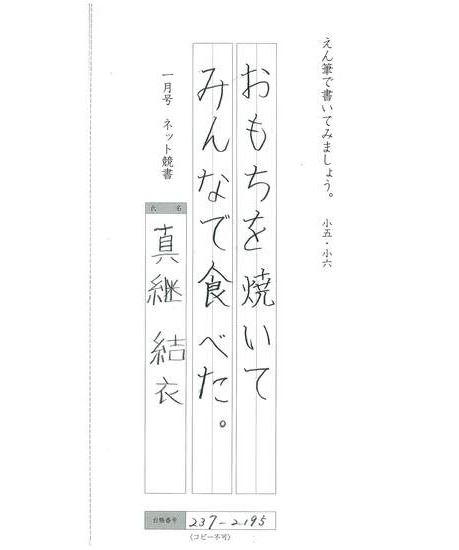 えん筆で書いてみましょう。 小五・小六
おもちを焼いて
みんなで食べた。
一月号 ネット競書
氏名
真継 結衣
台帳番号 237-2195
(コピー不可)